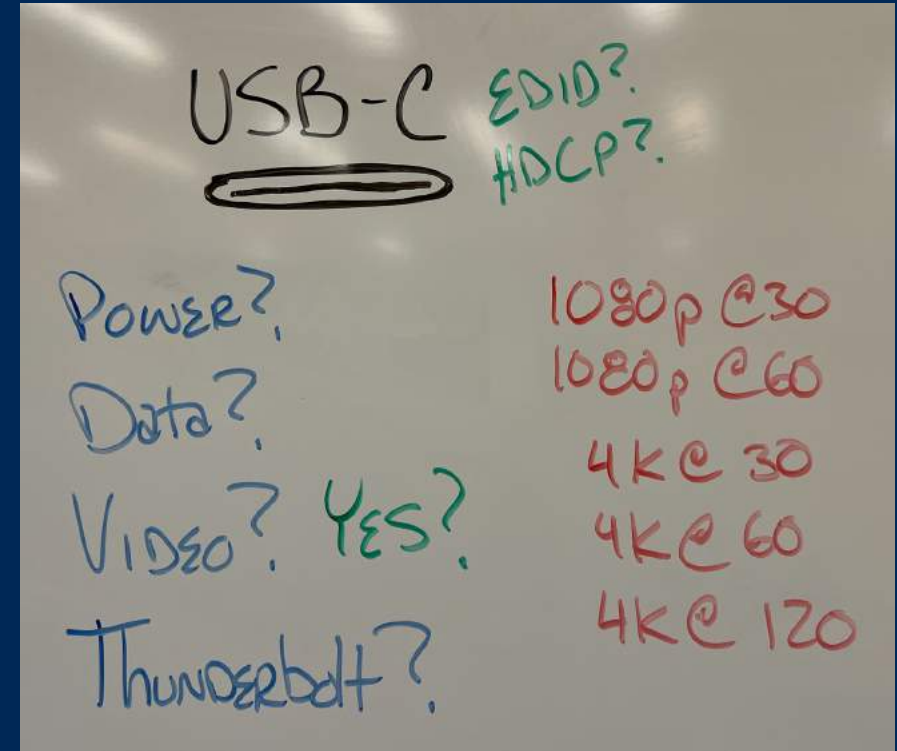 USB-C
EDID?
HDCP?
Power?
Data?
Video? Yes?
Thunderbolt?
1080p @30
1080p @60
4K @ 30
4K @ 60
4K @ 120